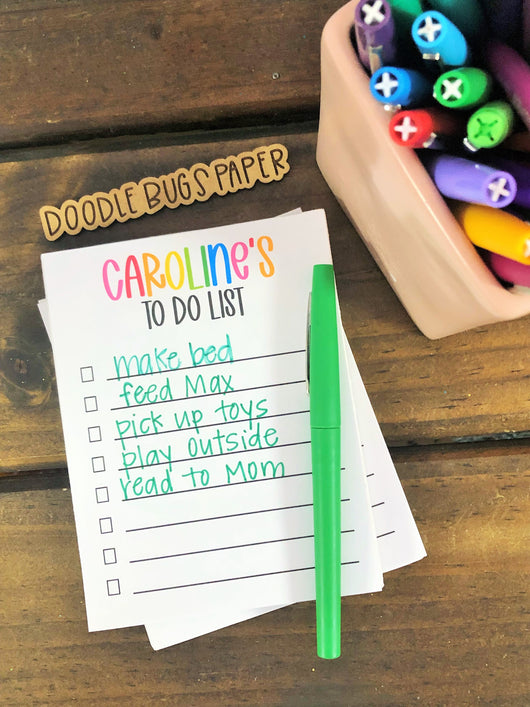 DOODLE BUGS PAPER
CAROLINE'S
TO DO LIST
make bed
feed Max
pick up toys
play outside
read to Mom